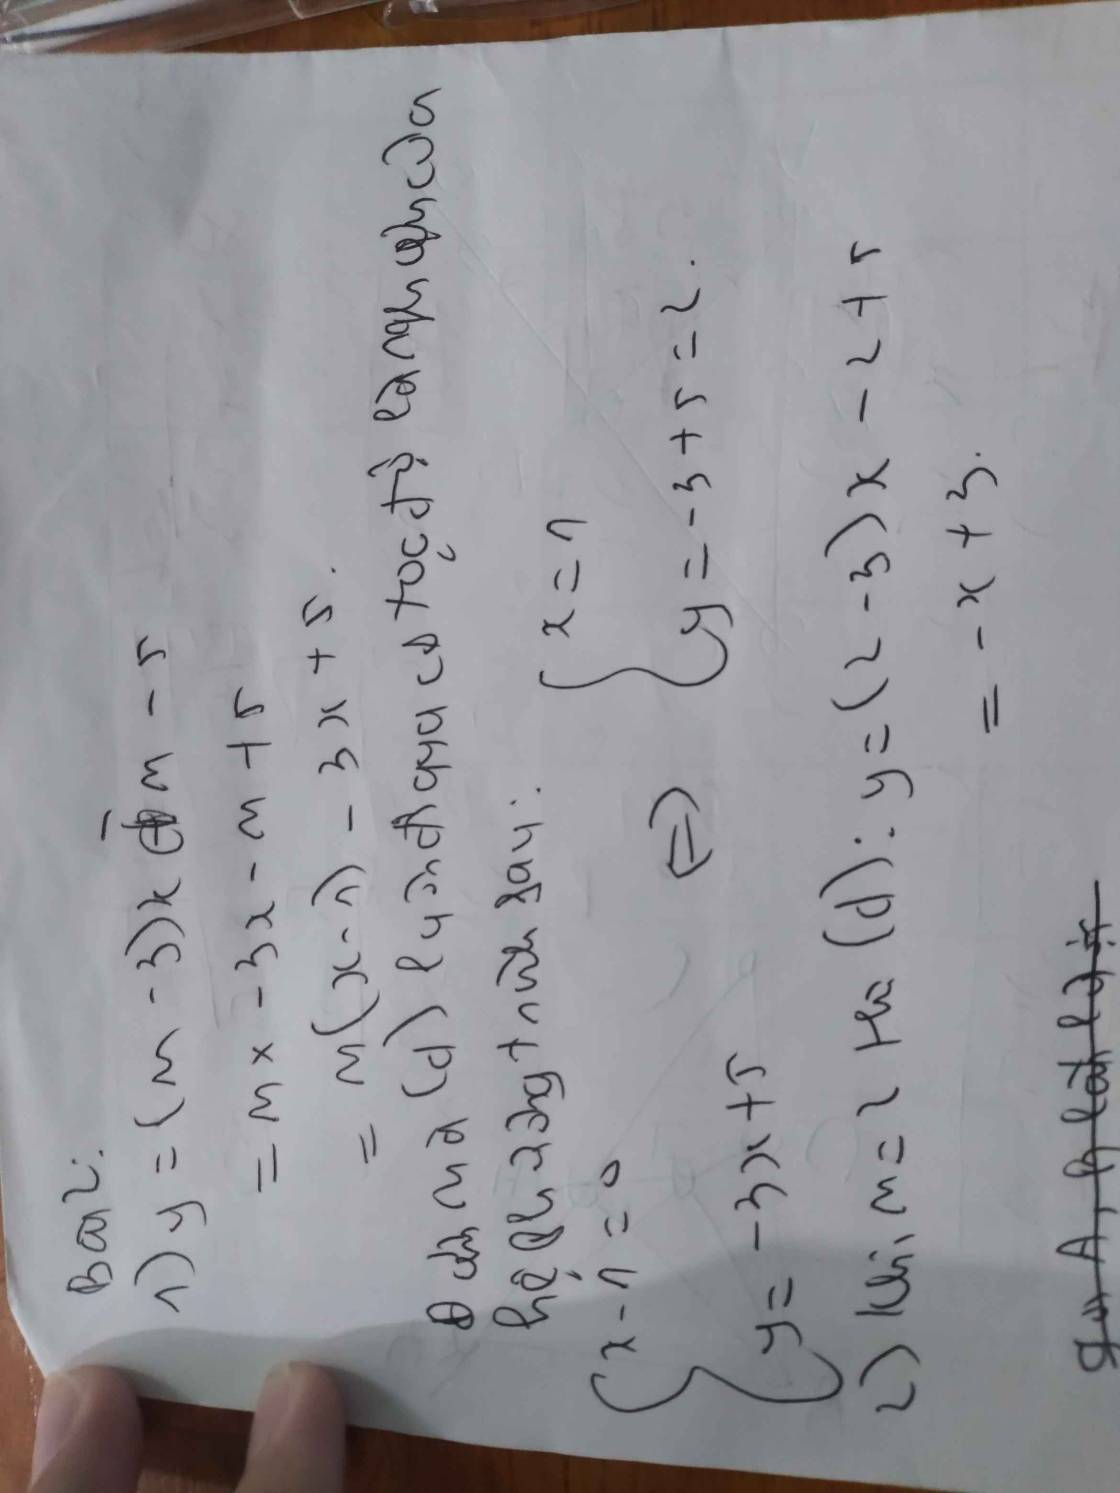 Bài 2:
1) y = (m - 3)x - m - 5
= mx - 3x - m + 5
= m(x - 1) - 3x + 5.
mà (d) luôn đi qua có tọa độ là nghiệm của
hệ phương trình sau:
{ x - 1 = 0 ⇔ { x = 1
{ y = -3x + 5 { y = -3 + 5 = 2.
2) Khi m = 2 thì (d): y = (2 - 3)x - 2 + 5
= -x + 3.